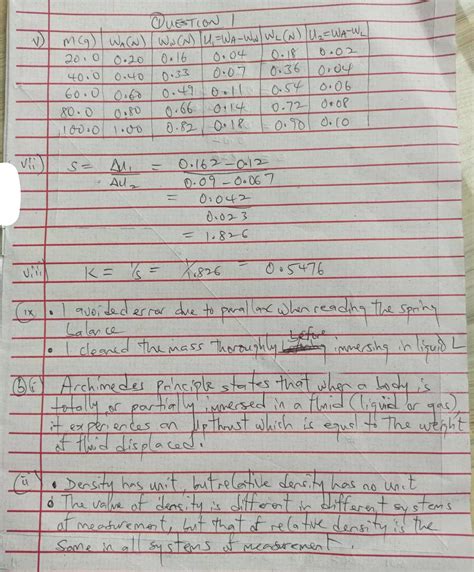 QUESTION 1
v) M(g) WA(N) WW(N) U1=WA-WW WL(N) U2=WA-WL
20.0 0.20 0.16 0.04 0.18 0.02
40.0 0.40 0.33 0.07 0.36 0.04
60.0 0.60 0.49 0.11 0.54 0.06
80.0 0.80 0.66 0.14 0.72 0.08
100.0 1.00 0.82 0.18 0.90 0.10
vii) S = Δu1 / Δu2 = 0.162 - 0.12 / 0.09 - 0.067
= 0.042 / 0.023
= 1.826
viii) K = 1/s = 1/1.826 = 0.5476
ix • I avoided error due to parallax when reading the spring
balance
• I cleaned the mass thoroughly before immersing in liquid L
b i) Archimedes principle states that when a body is
totally or partially immersed in a fluid (liquid or gas)
it experiences an upthrust which is equal to the weight
of fluid displaced.
ii • Density has unit, but relative density has no unit
• The value of density is different in different systems
of measurement, but that of relative density is the
same in all systems of measurement.